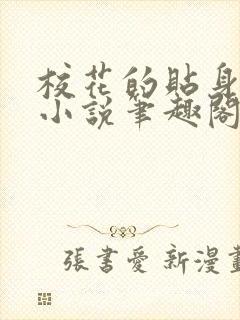 校花的貼身
小說筆趣閣
張書愛 新漫畫